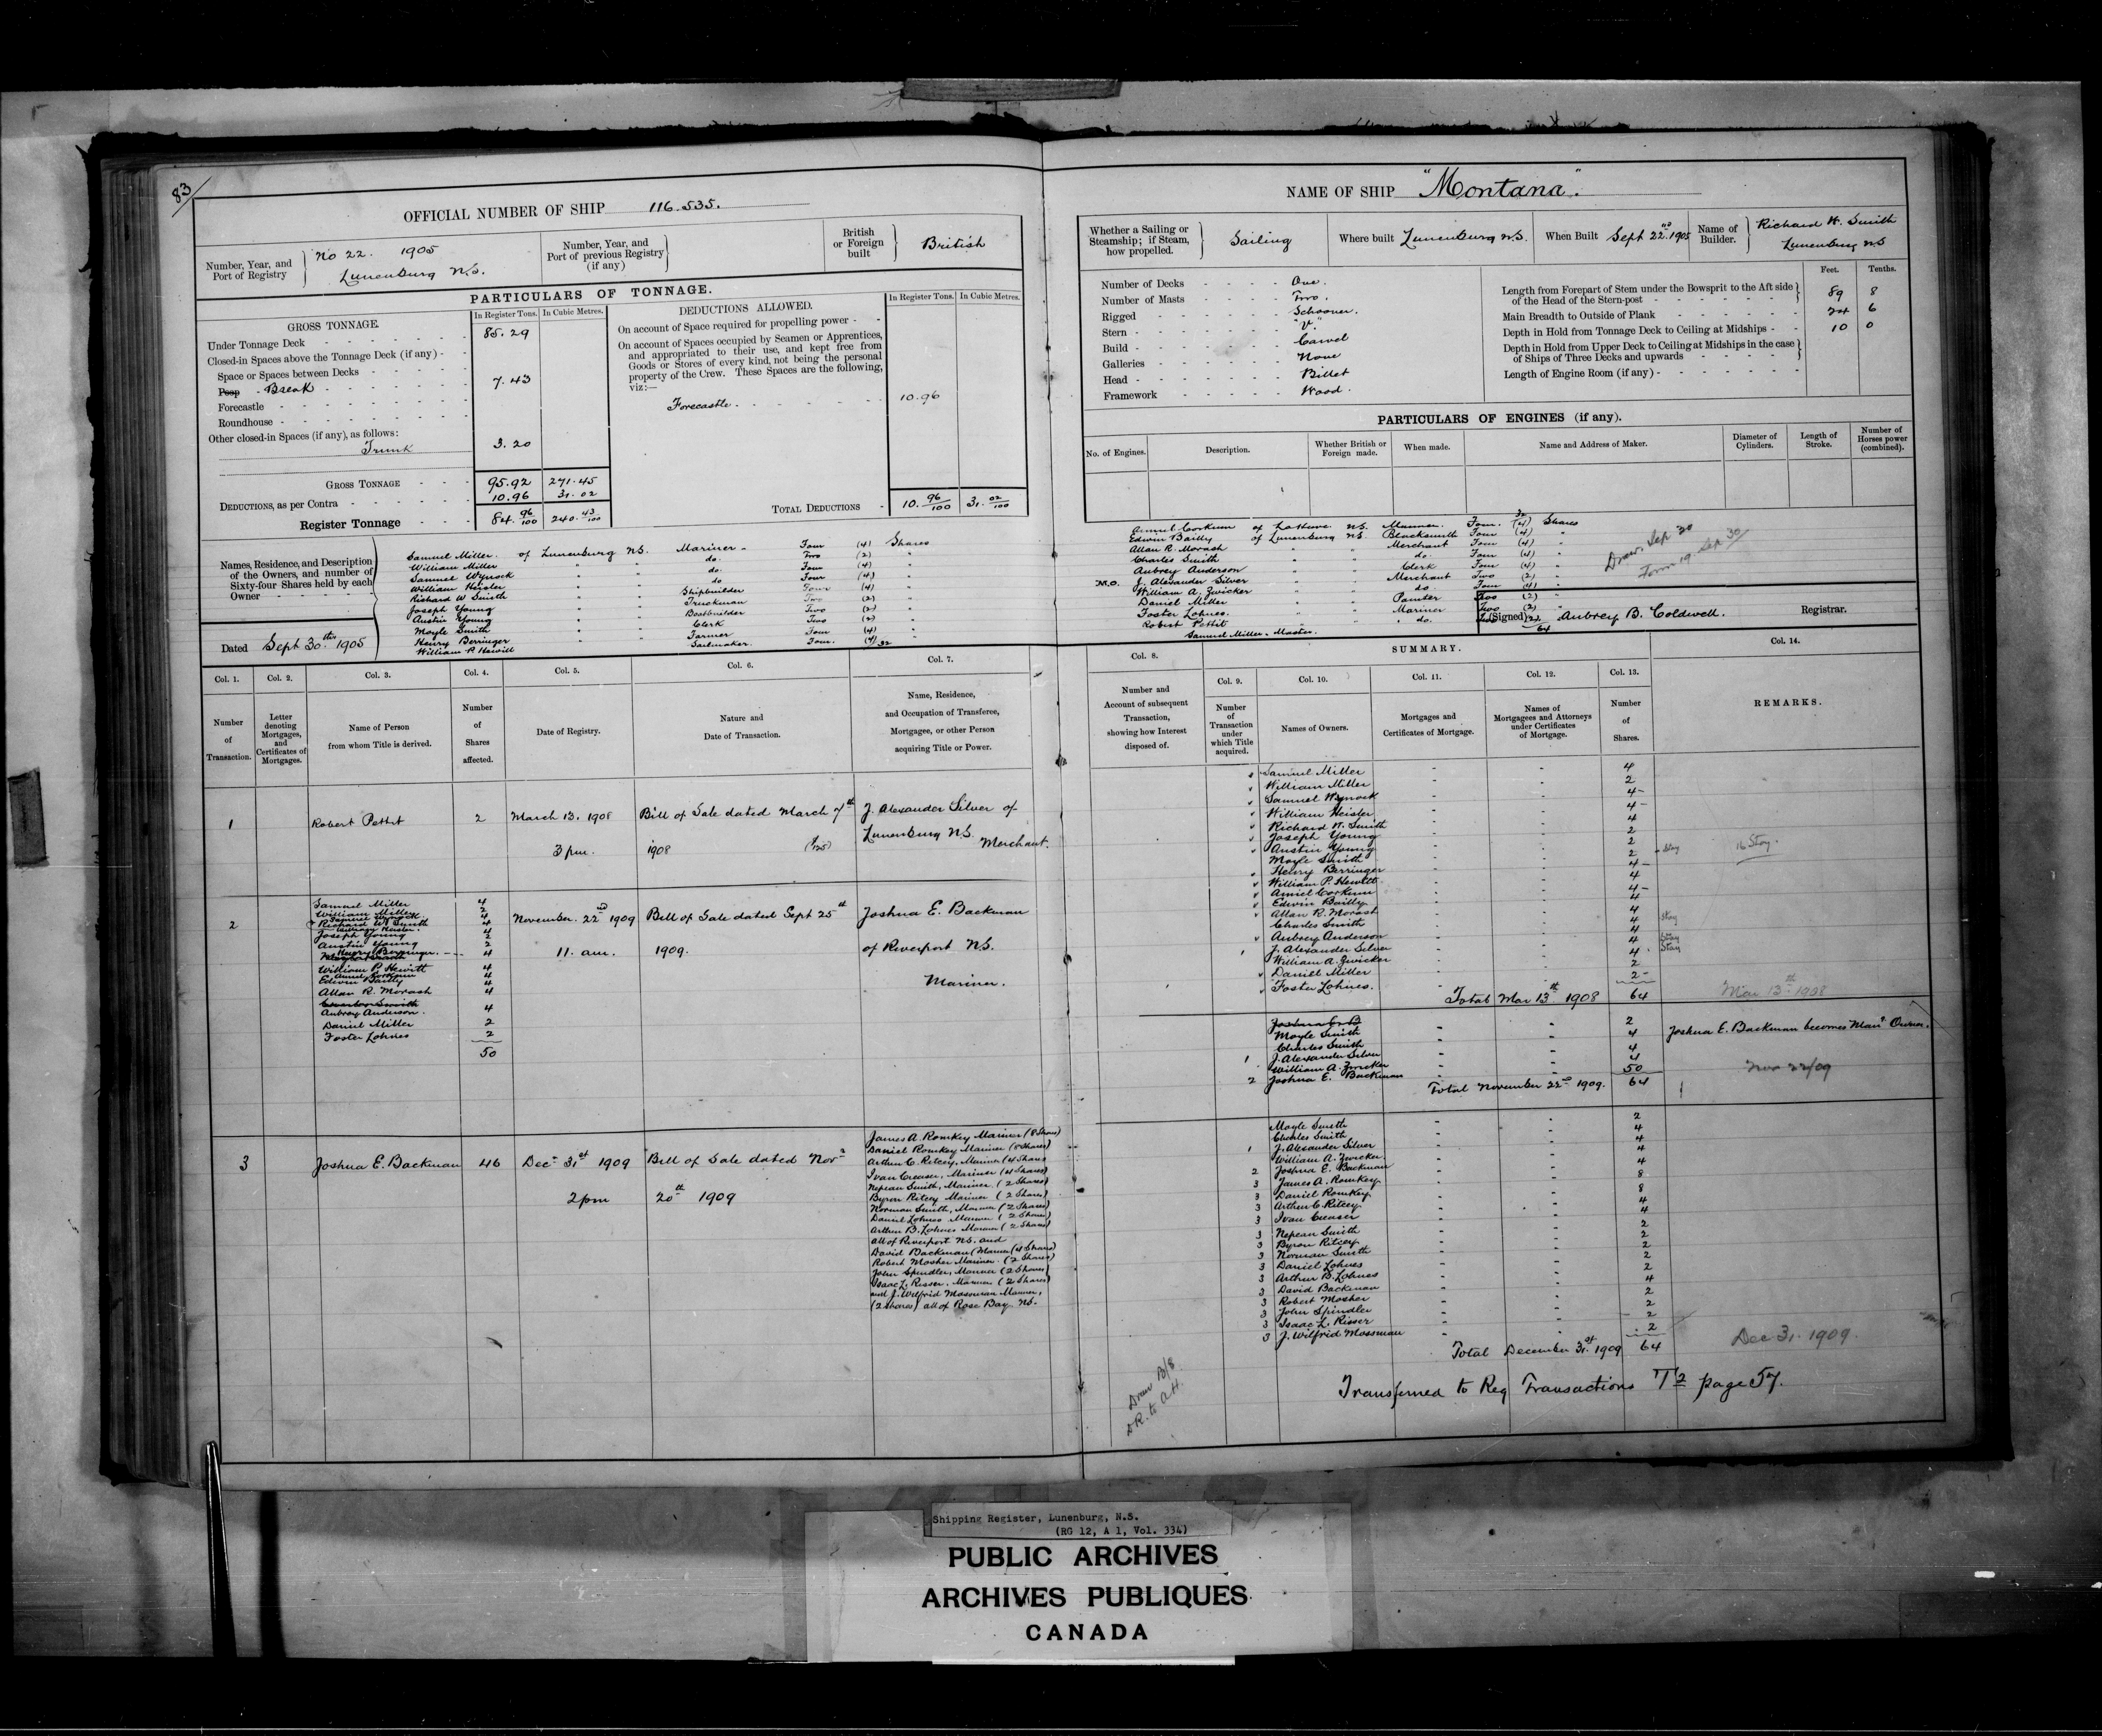 83/
OFFICIAL NUMBER OF SHIP 116.535.
Number, Year, and Port of Registry
No 22. 1905
Lunenburg N.S.
Number, Year, and Port of previous Registry (if any)
British or Foreign built
British
PARTICULARS OF TONNAGE.
GROSS TONNAGE.
In Register Tons. In Cubic Metres.
Under Tonnage Deck 85.29
Closed-in Spaces above the Tonnage Deck (if any) -
Space or Spaces between Decks
Poop - Break 7.43
Forecastle
Roundhouse
Other closed-in Spaces (if any), as follows:
Trunk 3.20
GROSS TONNAGE 95.92 271.45
DEDUCTIONS, as per Contra 10.96 31.02
Register Tonnage 84.96/100 240.43/100
DEDUCTIONS ALLOWED.
In Register Tons. In Cubic Metres.
On account of Space required for propelling power -
On account of Spaces occupied by Seamen or Apprentices,
and appropriated to their use, and kept free from
Goods or Stores of every kind, not being the personal
property of the Crew. These Spaces are the following,
viz:—
Forecastle. 10.96
TOTAL DEDUCTIONS - 10.96/100 31.02/100
Names, Residence, and Description
of the Owners, and number of
Sixty-four Shares held by each
Owner
Dated Sept 30th 1905
Samuel Miller. of Lunenburg N.S. Mariner Four (4) Shares
William Miller " " do. Two (2) "
Samuel Wynock " " do. Four (4) "
William Heisler " " do Four (4) "
Richard W Smith " " Shipbuilder Four (4) "
Joseph Young " " Truckman Two (2) "
Austin Young " " Boatbuilder Two (2) "
Moyle Smith " " Clerk Two (2) "
Henry Berringer " " Farmer Four (4) "
William P. Hewitt " " Sailmaker. Four. (4) 32
NAME OF SHIP "Montana".
Whether a Sailing or Steamship; if Steam, how propelled.
Sailing
Where built Lunenburg N.S.
When Built Sept 22nd 1905
Name of Builder.
Richard W. Smith
Lunenburg N.S
Number of Decks One.
Number of Masts Two.
Rigged Schooner.
Stern - V.
Build - Carvel
Galleries None
Head - Billet
Framework Wood.
Feet. Tenths.
Length from Forepart of Stem under the Bowsprit to the Aft side
of the Head of the Stern-post 89 8
Main Breadth to Outside of Plank 24 6
Depth in Hold from Tonnage Deck to Ceiling at Midships - 10 0
Depth in Hold from Upper Deck to Ceiling at Midships in the case
of Ships of Three Decks and upwards
Length of Engine Room (if any) -
PARTICULARS OF ENGINES (if any).
No. of Engines. Description. Whether British or Foreign made. When made. Name and Address of Maker. Diameter of Cylinders. Length of Stroke. Number of Horses power (combined).
32
Amiel Corkum of LaHave N.S. Mariner. Four. (4) Shares
Edwin Bailly of Lunenburg N.S. Blacksmith Four (4) "
Allan R. Morash " " Merchant Four (4) "
Charles Smith " " do. Four (4) "
Aubrey Anderson " " Clerk Four (4) "
M.O. J. Alexander Silver " " Merchant Two (2) "
William A. Zwicker " " do Four (4) "
Daniel Miller " " Painter Two (2) "
Foster Lohnes. " " Mariner Two (2) "
Robert Pettit " " do.
64
Samuel Miller - Master.
Draw. Sep 30
Form 19 Sep 30/
(Signed) Aubrey B. Coldwell. Registrar.
Col. 1. Col. 2. Col. 3. Col. 4. Col. 5. Col. 6. Col. 7.
Number of Transaction.
Letter denoting Mortgages, and Certificates of Mortgages.
Name of Person from whom Title is derived.
Number of Shares affected.
Date of Registry.
Nature and Date of Transaction.
Name, Residence, and Occupation of Transferee, Mortgagee, or other Person acquiring Title or Power.
1 Robert Pettit 2 March 13. 1908 Bill of Sale dated March 7th J. Alexander Silver of
3 pm. 1908 Lunenburg N.S.
Merchant.
2
Samuel Miller 4
William Miller 2
Samuel Wynock 4
Richard W. Smith 4
William Heisler. 4
Joseph Young 2
Austin Young 2
Henry Berringer. 4
William P. Hewitt 4
Amiel Corkum 4
Edwin Bailly 4
Allan R. Morash 4
Aubrey Anderson. 4
Daniel Miller 2
Foster Lohnes 2
50
November. 22nd 1909 Bill of Sale dated Sept 25th Joshua E. Backman
11. am. 1909. of Riverport N.S.
Mariner.
3 Joshua E. Backman 46 Dec 31st 1909 Bill of Sale dated Novr
2 pm 20th 1909
James A. Romkey Mariner (8 Shares)
Daniel Romkey Mariner (8 Shares)
Arthur C. Ritcey, Mariner (4 Shares
Ivan Creaser, Mariner (4 Shares)
Nepean Smith, Mariner. (2 Shares)
Byron Ritcey Mariner (2 Shares)
Norman Smith, Mariner (2 Shares)
Daniel Lohnes Mariner (2 Shares)
Arthur B. Lohnes Mariner (2 Shares)
all of Riverport N.S. and
David Backman (Mariner (4 Shares)
Robert Mosher Mariner. (2 Shares)
John Spindler, Mariner (2 Shares)
Isaac L. Risser, Mariner (2 Shares)
and J. Wilfrid Mossman Mariner,
(2 Shares) all of Rose Bay N.S.
SUMMARY.
Col. 8. Col. 9. Col. 10. Col. 11. Col. 12. Col. 13. Col. 14.
Number and Account of subsequent Transaction, showing how Interest disposed of.
Number of Transaction under which Title acquired.
Names of Owners.
Mortgages and Certificates of Mortgage.
Names of Mortgagees and Attorneys under Certificates of Mortgage.
Number of Shares.
REMARKS.
Samuel Miller 4
William Miller 2
Samuel Wynock 4
William Heisler 4
Richard W. Smith 4
Joseph Young 2
Austin Young 2
Moyle Smith 2 Stay
Henry Berringer 4
William P. Hewitt 4
Amiel Corkum 4
Edwin Bailly 4
Allan R. Morash 4
Charles Smith 4 Stay
Aubrey Anderson 4
1 J. Alexander Silver 4 Stay
William A. Zwicker 4 Stay
Daniel Miller 2
Foster Lohnes. 2
16 Stay.
Total Mar 13th 1908 64 Mar 13th 1908
Moyle Smith 2
Charles Smith 4
1 J. Alexander Silver 4
William A. Zwicker 4
2 Joshua E. Backman 50
Total November 22nd 1909. 64
Joshua E. Backman becomes Man. Owner.
Nov 22/09
Moyle Smith 2
Charles Smith 4
1 J. Alexander Silver 4
William A. Zwicker 4
2 Joshua E. Backman 4
3 James A. Romkey 8
3 Daniel Romkey 8
3 Arthur C Ritcey 4
3 Ivan Creaser 4
3 Nepean Smith 2
3 Byron Ritcey 2
3 Norman Smith 2
3 Daniel Lohnes 2
3 Arthur B. Lohnes 2
3 David Backman 4
3 Robert Mosher 2
3 John Spindler 2
3 Isaac L. Risser 2
3 J. Wilfrid Mossman 2
Total December 31st 1909 64 Dec 31. 1909.
Draw B/S
DR. to AH.
Transferred to Reg Transactions T2 page 57.
Shipping Register, Lunenburg, N.S.
(RG 12, A 1, Vol. 334)
PUBLIC ARCHIVES
ARCHIVES PUBLIQUES
CANADA